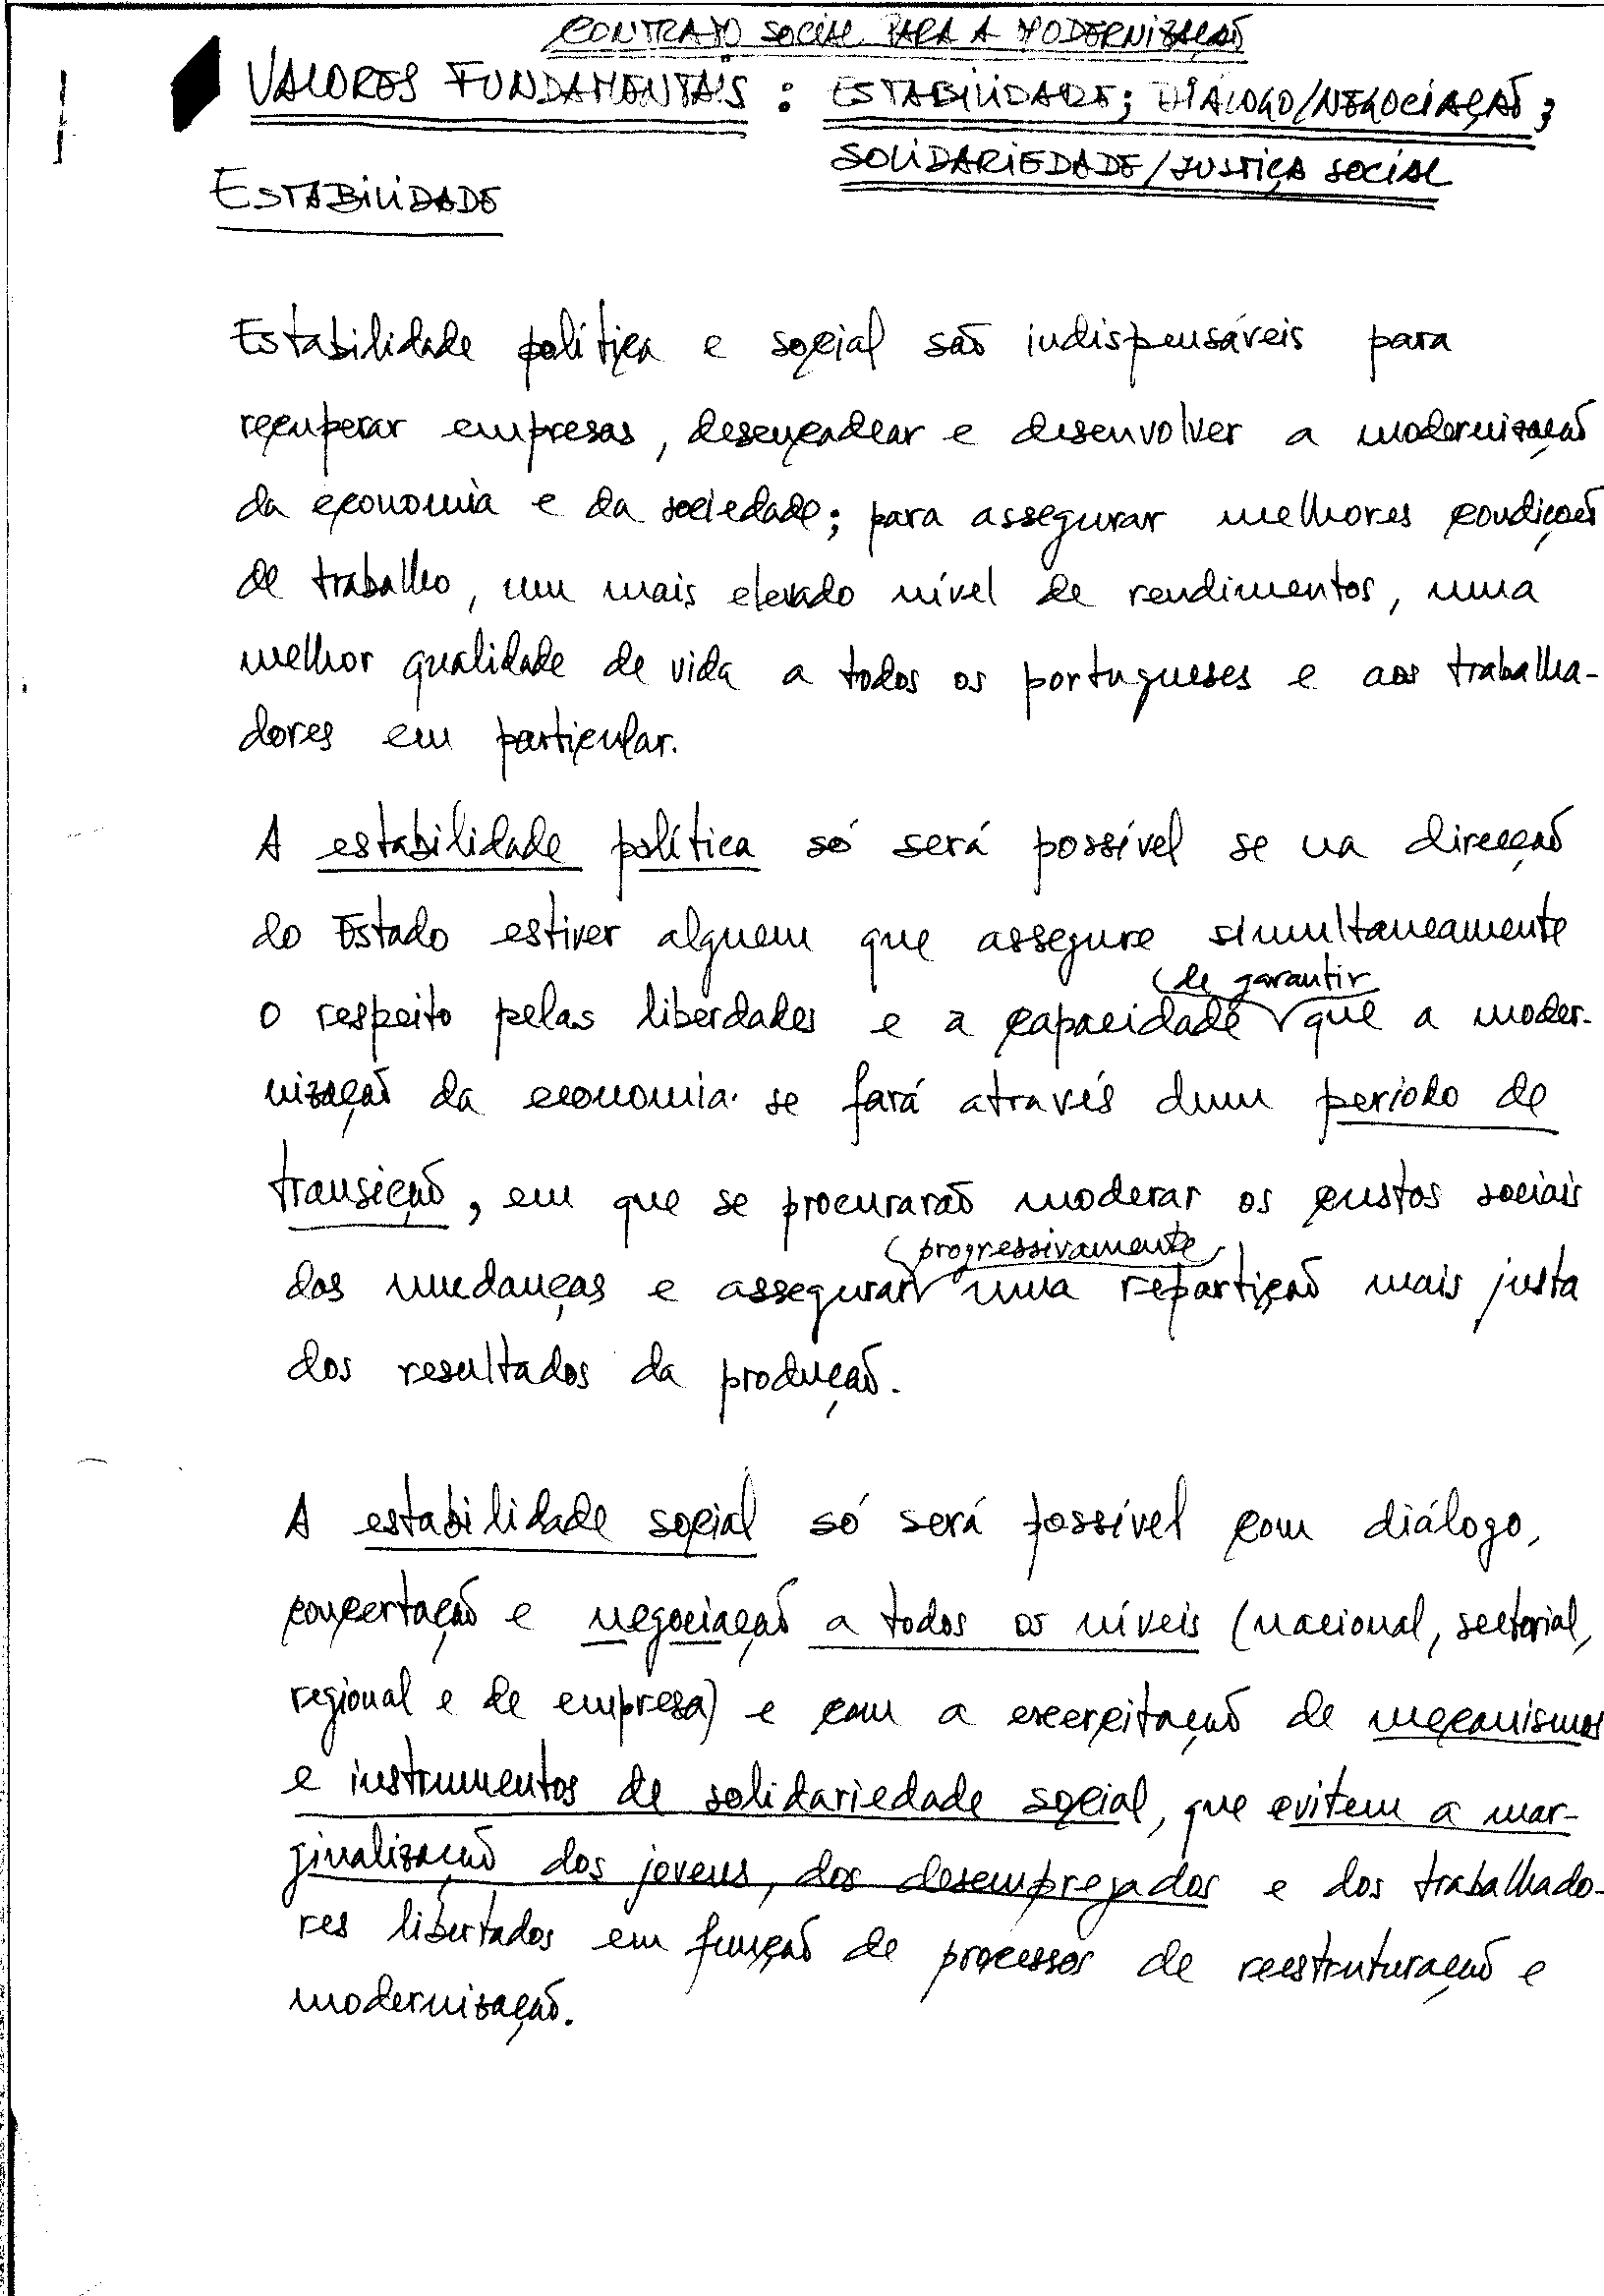 CONTRATO SOCIAL PARA A MODERNIZAÇÃO
VALORES FUNDAMENTAIS : ESTABILIDADE; DIÁLOGO/NEGOCIAÇÃO;
SOLIDARIEDADE/JUSTIÇA SOCIAL
ESTABILIDADE
Estabilidade política e social são indispensáveis para
recuperar empresas, desencadear e desenvolver a modernização
da economia e da sociedade; para assegurar melhores condições
de trabalho, um mais elevado nível de rendimentos, uma
melhor qualidade de vida a todos os portugueses e aos trabalha-
dores em particular.
A estabilidade política só será possível se na direcção
do Estado estiver alguem que assegure simultaneamente
de garantir
o respeito pelas liberdades e a capacidade que a moder-
nização da economia se fará através dum período de
transição, em que se procurarão moderar os custos sociais
progressivamente
das mudanças e assegurar uma repartição mais justa
dos resultados da produção.
A estabilidade social só será possível com diálogo,
concertação e negociação a todos os níveis (nacional, sectorial,
regional e de empresa) e com a exercitação de mecanismos
e instrumentos de solidariedade social, que evitem a mar-
ginalização dos jovens, dos desempregados e dos trabalhado-
res libertados em função de processos de reestruturação e
modernização.